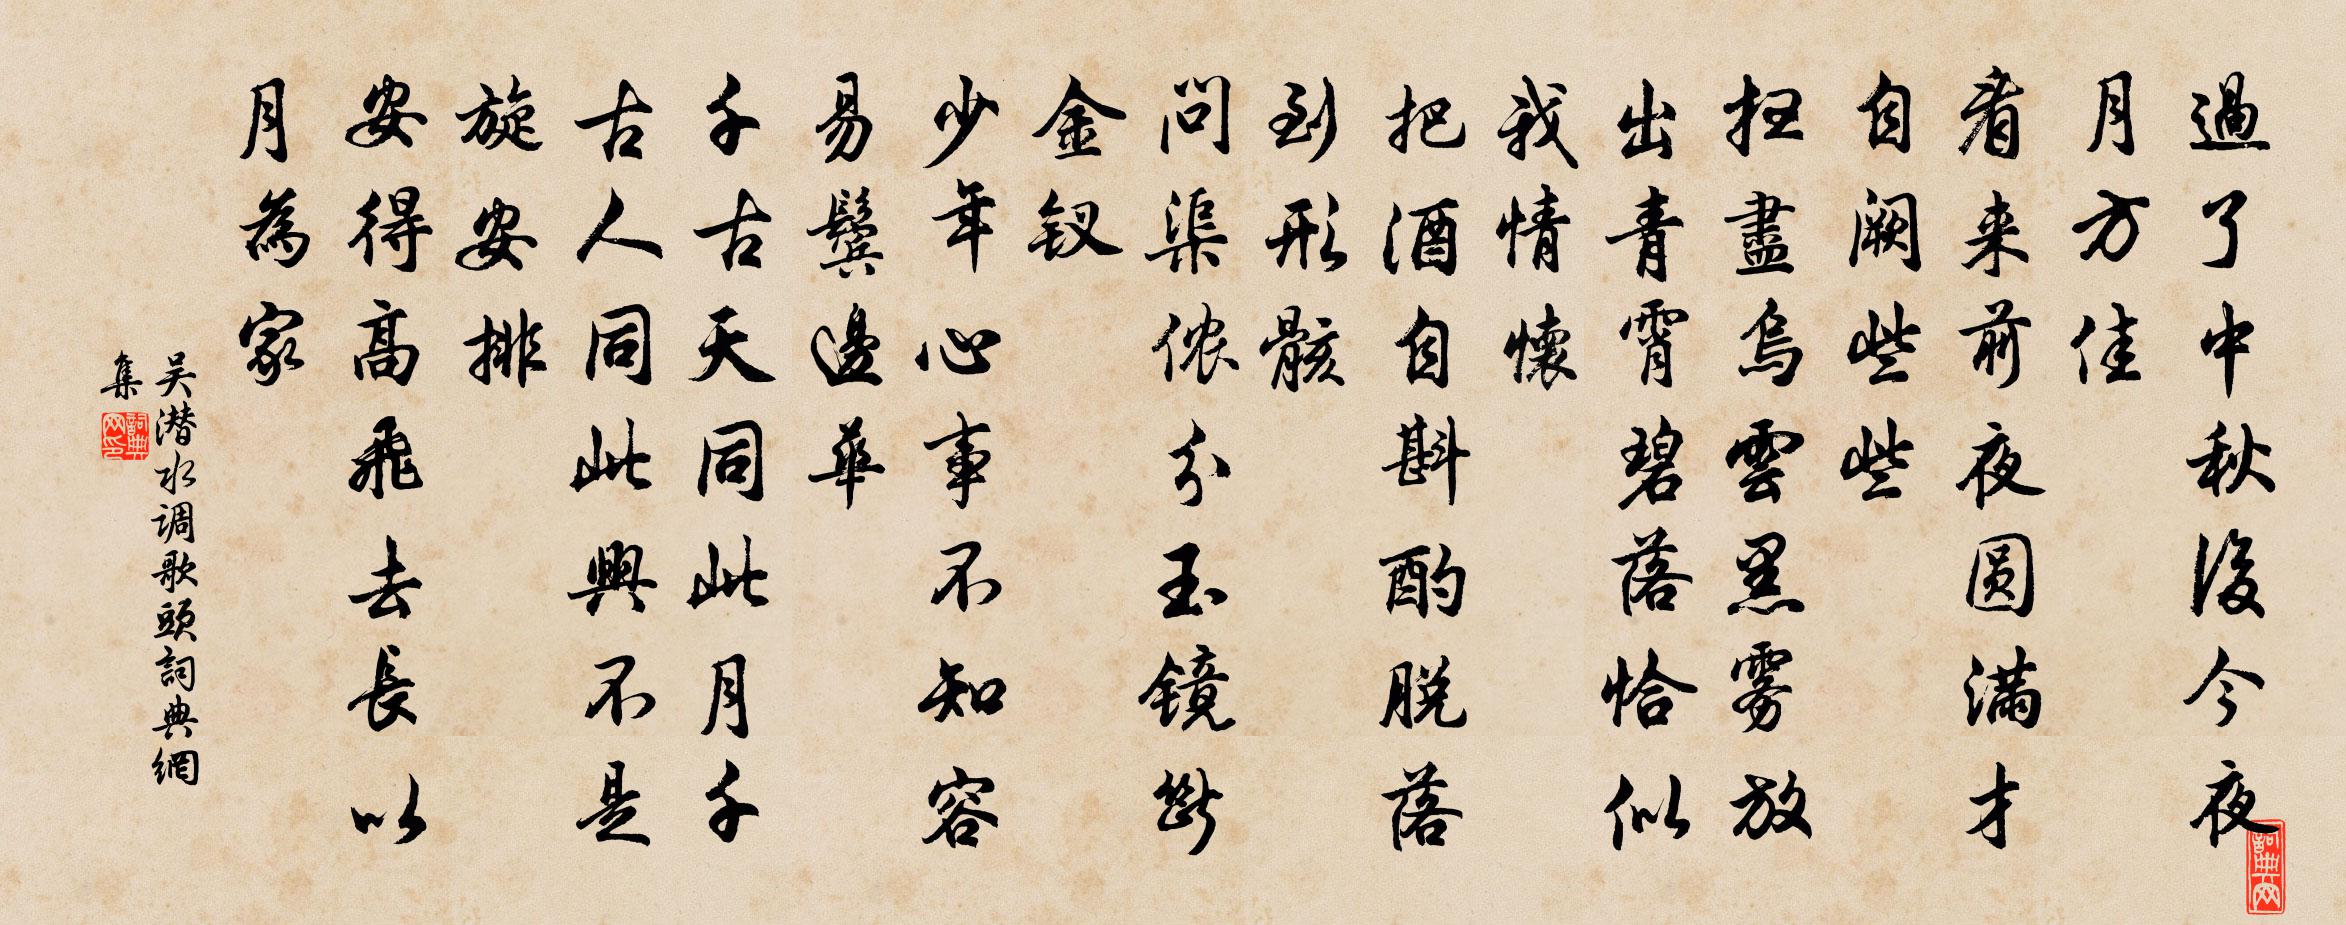 過了中秋後今夜
月方佳
看来前夜圆滿才
自阙些些
扫盡烏雲黑雾放
出青霄碧落恰似
我情懷
把酒自斟酌脱落
到形骸
問渠侬分玉镜斷
金钗
少年心事不知容
易鬓邊華
千古天同此月千
古人同此興不是
旋安排
安得高飛去長以
月為家
吴潜水调歌頭詞典網
集
詞典网印
詞典网